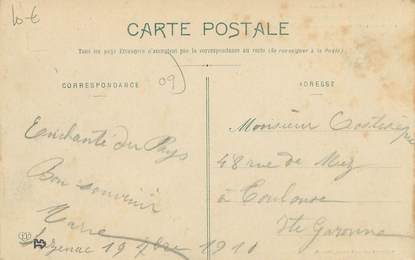 10-€
CARTE POSTALE
Tous les pays étrangers n'acceptent pas la correspondance au recto (Se renseigner à la Poste).
CORRESPONDANCE
09
ADRESSE
Enchanté du Pays
Bon souvenir
Marie
19 1910
Monsieur
48 rue de Metz
à Toulouse
Hte Garonne